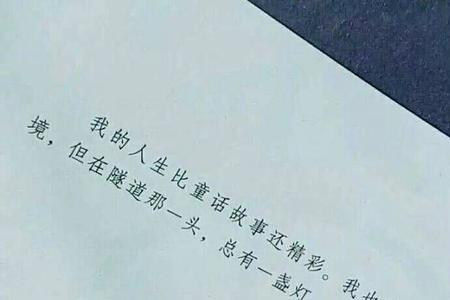 我的人生比童话故事还精彩。我
境，但在隧道那一头，总有一盏灯